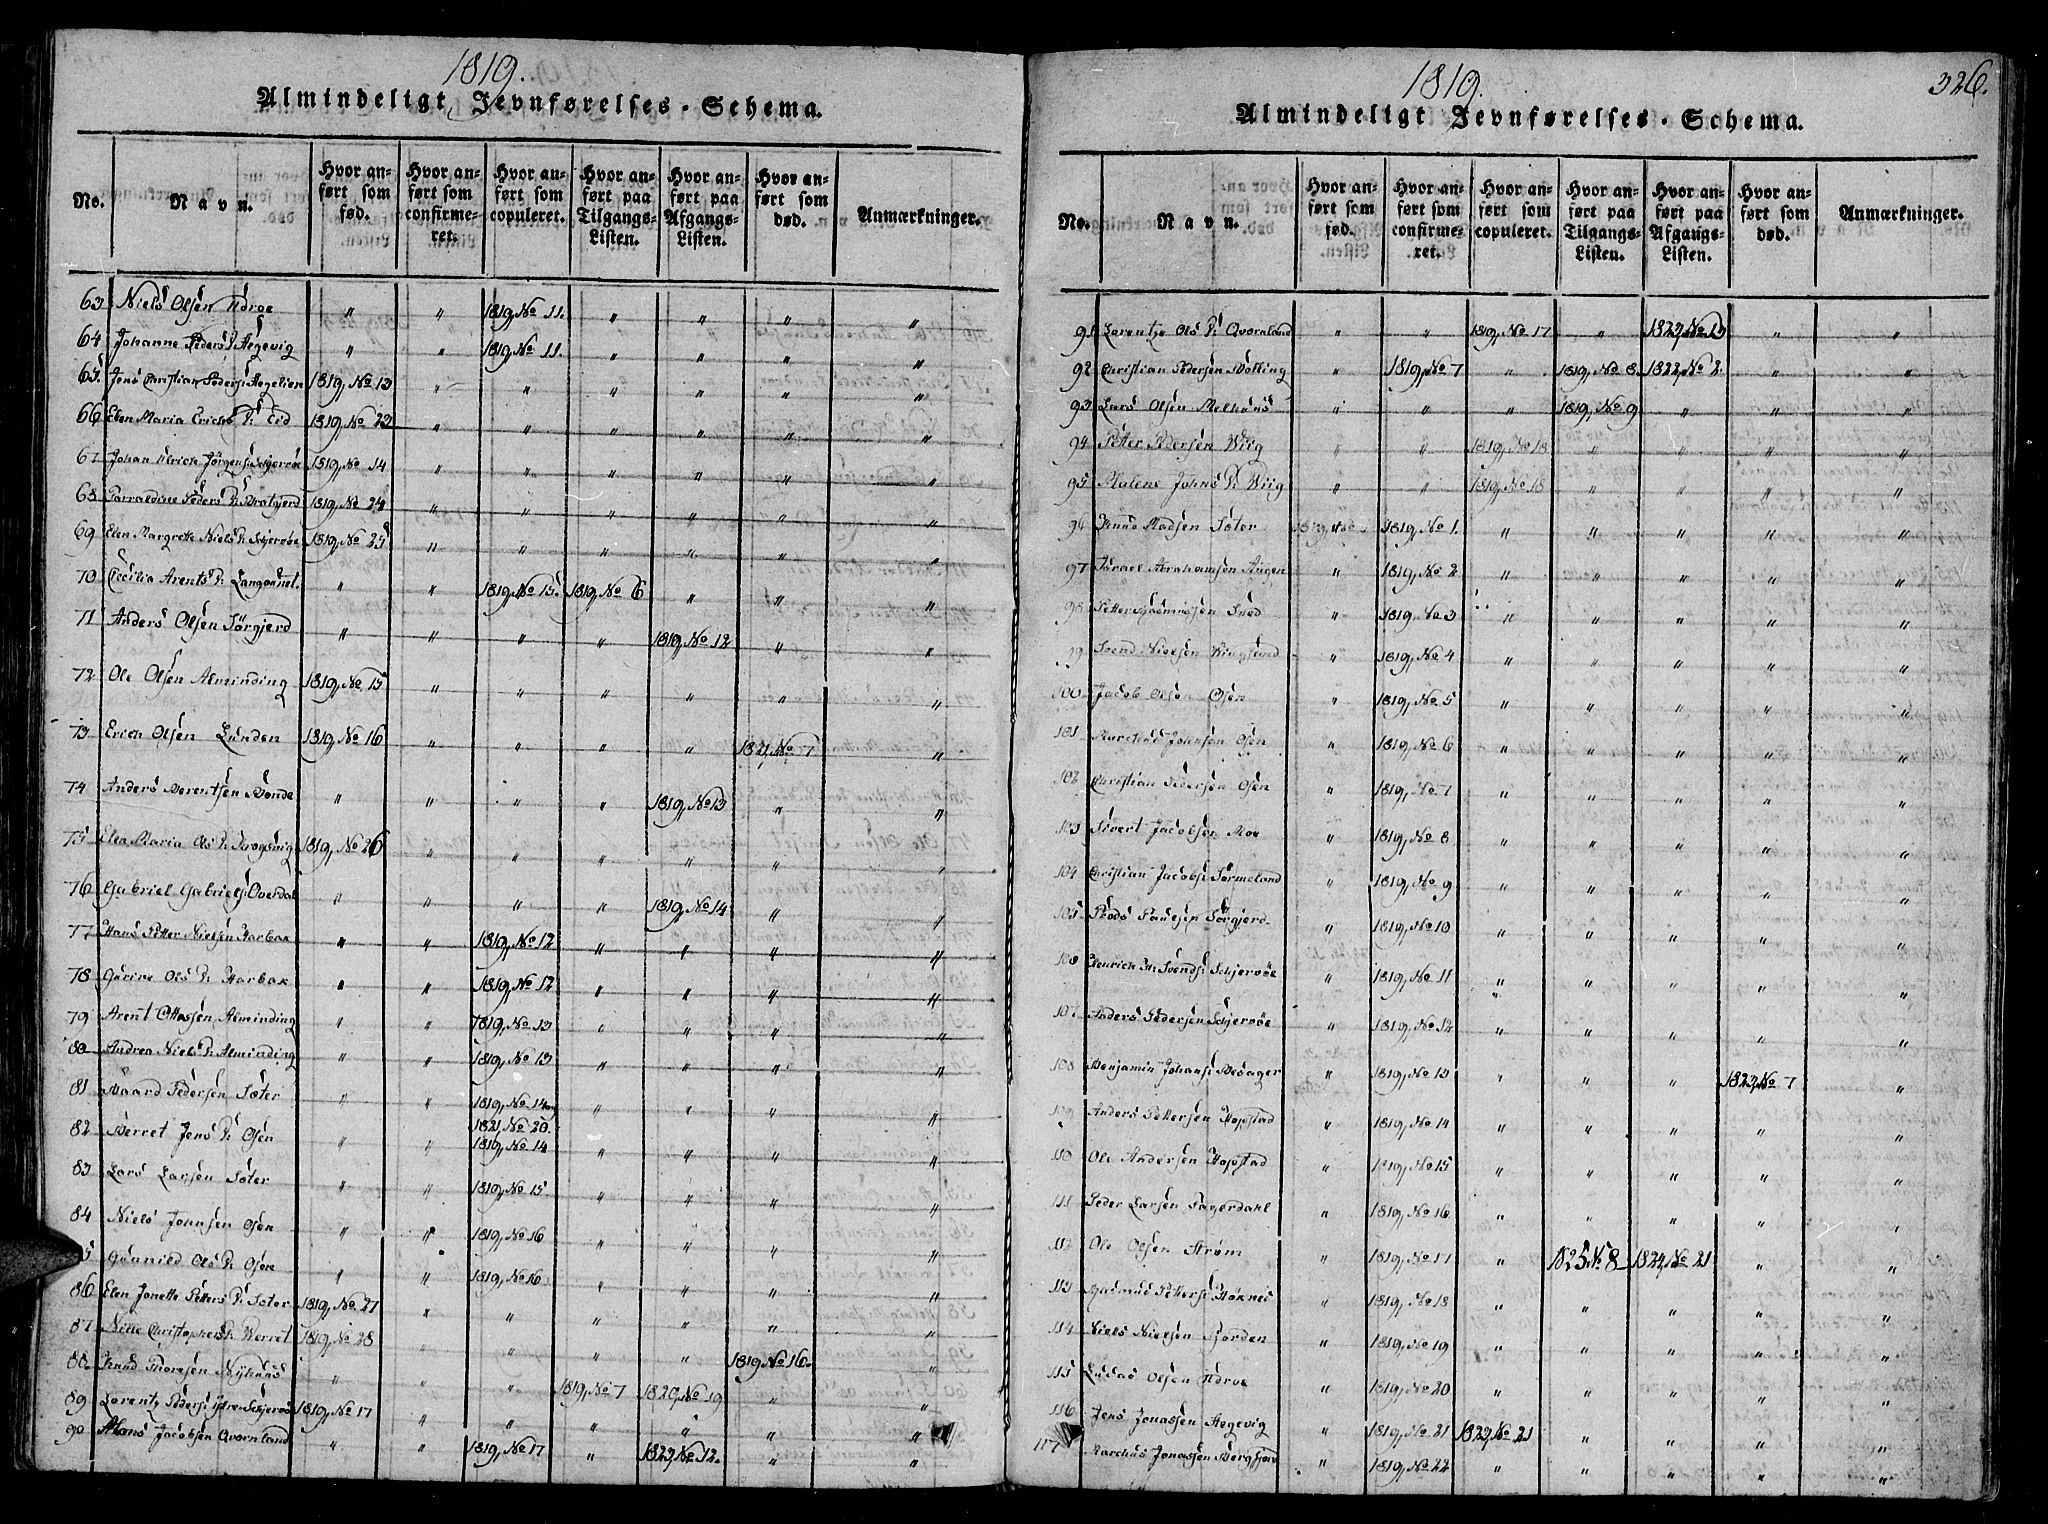 1819.
Almindeligt Jevnførelses-Schema.
No. Navn. Hvor anført som fød. Hvor anført som confirmeret. Hvor anført som copuleret. Hvor anført paa Tilgangs-Listen. Hvor anført paa Afgangs-Listen. Hvor anført som død. Anmærkninger.
63 Niels Olsen " " 1819, No 11. " " " "
64 Johanne Peders D: Aegevig " " 1819, No 11. " " " "
65. Jens Christian Peders: 1819, No 13 " " " " " "
66 Elen Maria Erichs D: Eid 1819, No 23 " " " " " "
67 Johan Ulrich Jørgens: Schjervøe 1819, No 14 " " " " " "
68 Peders D: 1819, No 24 " " " " " "
69 Elen Margrete Niels D: Schjervøe 1819, No 25 " " " " " "
70 Cecilia Arents D: " " 1819, No 15. 1819, No 6 " " "
71 Anders Olsen Sørgjerd " " " " 1819, No 12 " "
72 Ole Olsen Alminding 1819, No 15 " " " " " "
73 Erich Olsen Lunden 1819, No 16 " " " " 1821, No 7 "
74 Anders Berentsen Bonde " " " " 1819, No 13 " "
75 Elen Maria Ols D: Krogsvig 1819, No 26 " " " " " "
76 Gabriel Gabriels: Overdal " " " " 1819, No 14 " "
77 Hans Petter Nielsen Harbak " " 1819, No 12 " " " "
78 Gurine Ols D: Harbak " " 1819, No 12 " " " "
79 Arent Ottesen Alminding " " 1819, No 13 " " " "
80 Andrea Niels D: Alminding " " 1819, No 13 " " " "
81 Baard Pedersen Sæter " " 1819, No 14 " " " "
1821, No 20.
82 Berret Jens D: Osen " " 1819, No 14 " " " "
83 Lars Larsen Sæter " " 1819, No 15. " " " "
84 Niels Johnsen Osen " " 1819, No 16 " " " "
85 Gunnild Ols D: Osen " " 1819, No 16 " " " "
86 Elen Jonette Petters D: Sæter 1819, No 27 " " " " " "
87 Nille Christophers D: Berret 1819, No 28 " " " " " "
88. Knud Thoresen Nyhuus " " " " " 1819 No 16. "
89 Lorentz Peders: Schjervøe 1819, No 17 " " 1819, No 7 1820, No 19 " "
90 Hans Jacobsen Qvernland " " 1819, No 17 " 1823, No 12. " "
1819.
326.
Almindeligt Jevnførelses-Schema.
No. Navn. Hvor anført som fød. Hvor anført som confirmeret. Hvor anført som copuleret. Hvor anført paa Tilgangs-Listen. Hvor anført paa Afgangs-Listen. Hvor anført som død. Anmærkninger.
91 Lorentze Ols D: Qvernland " " 1819, No 17 " 1823, No 13 " "
92 Christian Pedersen Bølling " 1819, No 7 " 1819, No 8. 1822, No 2. " "
93 Lars Olsen Melhuus " " " 1819, No 9 " " "
94 Petter Pedersen Wiig " " 1819, No 18 " " " "
95 Malene Johns D: Wiig " " 1819, No 18 " " " "
96 Knud Madsen Sæter 1819, No 1. " " " " "
97 Israel Abrahamsen Angen " 1819, No 2 " " " " "
98 Petter " 1819, No 3 " " " " "
99 Svend Nielsen Vingsund " 1819, No 4 " " " " "
100 Jacob Olsen Osen " 1819, No 5 " " " " "
101 Johnsen Osen " 1819, No 6 " " " " "
102 Christian Pedersen Osen " 1819, No 7 " " " " "
103 Sivert Jacobsen Moe " 1819, No 8 " " " " "
104 Christian Jacobs: Sørmeland " 1819, No 9 " " " " "
105 Sørgjerd " 1819, No 10 " " " " "
106 Henrich P: Svends: Schjervøe " 1819, No 11 " " " " "
107 Anders Pedersen Schjervøe " 1819, No 12 " " " " "
108 Benjamin Johans: Besager " 1819, No 13 " " " 1823, No 7 "
109 Anders Pettersen Hopstad " 1819, No 14 " " " " "
110 Ole Andersen Hopstad " 1819, No 15 " " " " "
111 Peder Larsen Fagerdahl " 1819, No 16 " " " " "
112 Ole Olsen Strøm " 1819, No 17 " 1825 No 8 1824, No 21 " "
113 Petters: " 1819, No 18 " " " " "
114 Niels Nielsen Fjorden " 1819, No 19 " " " " "
115 Lucas Olsen " 1819, No 20 " " " " "
116 Jens Jonassen Aegevig " 1819, No 21 1823, No 21 " " " "
117 Marchus Jonassen Bergfjord " 1819, No 22 " " " " "